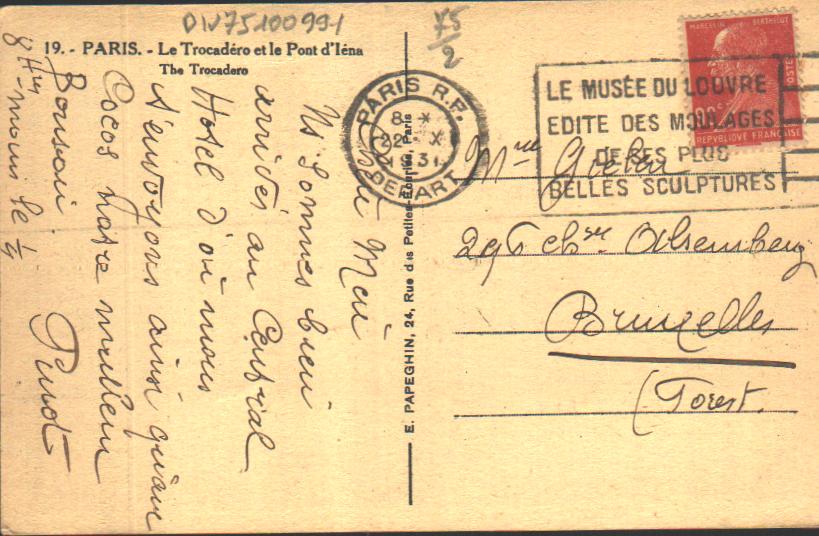 DIV75100991
75/2
19. - PARIS. - Le Trocadéro et le Pont d'Iéna
The Trocadero
PARIS R.P.
8 H
22 X
1931
DEPART
LE MUSÉE DU LOUVRE
EDITE DES MOULAGES
DE SES PLUS
BELLES SCULPTURES
MARCELIN BERTHELOT
POSTES
90c
REPVBLIQVE FRANÇAISE
E. PAPEGHIN, 24, Rue des Petites-Ecuries, Paris
Mme
296 chée Alsemberg
Bruxelles
(Forest.
Ns sommes bien
arrivés au Central
Hotel d'où nous
t'envoyons ainsi qu'aux
Cocos notre meilleur
Bonsoir.
8 Hres moins le ¼